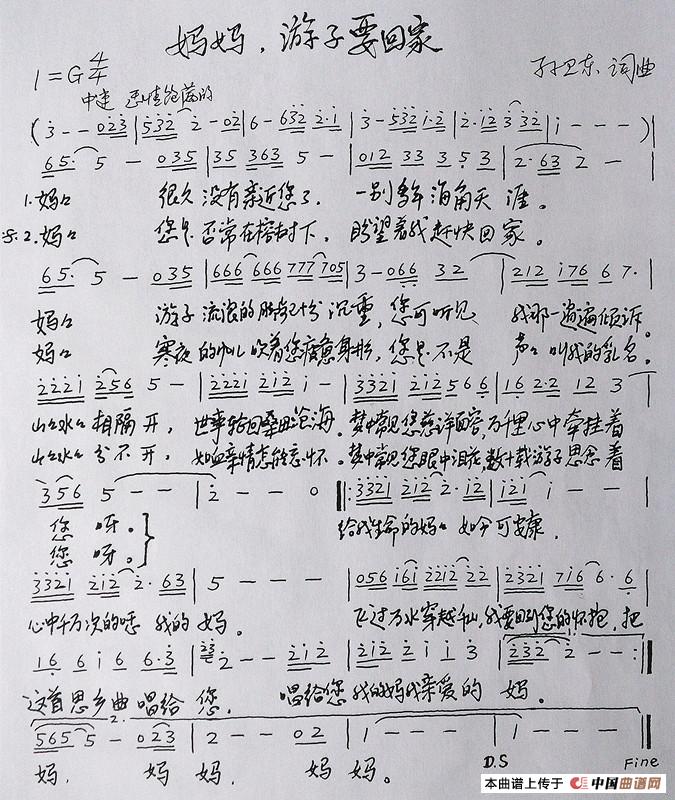 妈妈，游子要回家
1=G 4/4
孙卫东 词曲
中速
(3 - - 023 | 532 2 - 02 | 6 - 632 2·1 | 3 - 532 1·2 | 2·12 3 32 | 1 - - - )
65· 5 - 035 | 35 363 5 - | 012 33 3 5 3 | 2·63 2 - |
1.妈妈 很久没有亲近您了. 一别多年海角天涯。
2.妈妈 您是否常在榕树下, 盼望着我赶快回家。
65· 5 - 035 | 666 666 777 705 | 3 - 066 32 | 212 176 6 7· |
妈妈 游子流浪的 沉重, 您可听见 我那一遍遍倾诉。
妈妈 寒夜的 吹着您疲惫身形, 您是不是 声声叫我的乳名。
2221 256 5 - | 2221 212 1 - | 3321 212 5 6 6 | 16 2·2 12 3 |
山山水水相隔开, 世事轮回桑田沧海. 梦中常见您慈祥面容, 万千里心中牵挂着
山山水水分不开, 如血亲情怎能忘怀. 梦中常见您眼中泪花, 数十载游子思念着
356 5 - - | 2 - - 0 ‖: 3321 212 2·12 | 121 1 - - |
您 呀。
您 呀。
给我生命的妈妈 如今可安康.
3321 212 2·63 | 5 - - - | 056 161 2212 22 | 2321 716 6·6 |
心中千万次的呼 我的 妈。 飞过万水穿越千山, 我要回到您的怀抱, 把
16 6 1 6 6·3 | 2 - - 212 | 212 2 1 1 3 | 232 2 - - :‖
这首思乡曲唱给 您, 唱给您我的妈我亲爱的 妈。
2.
565 5 - 023 | 2 - - 02 | 1 - - - | 1 - - - ‖
妈, 妈 妈, 妈 妈。
D.S Fine
本曲谱上传于 中国曲谱网